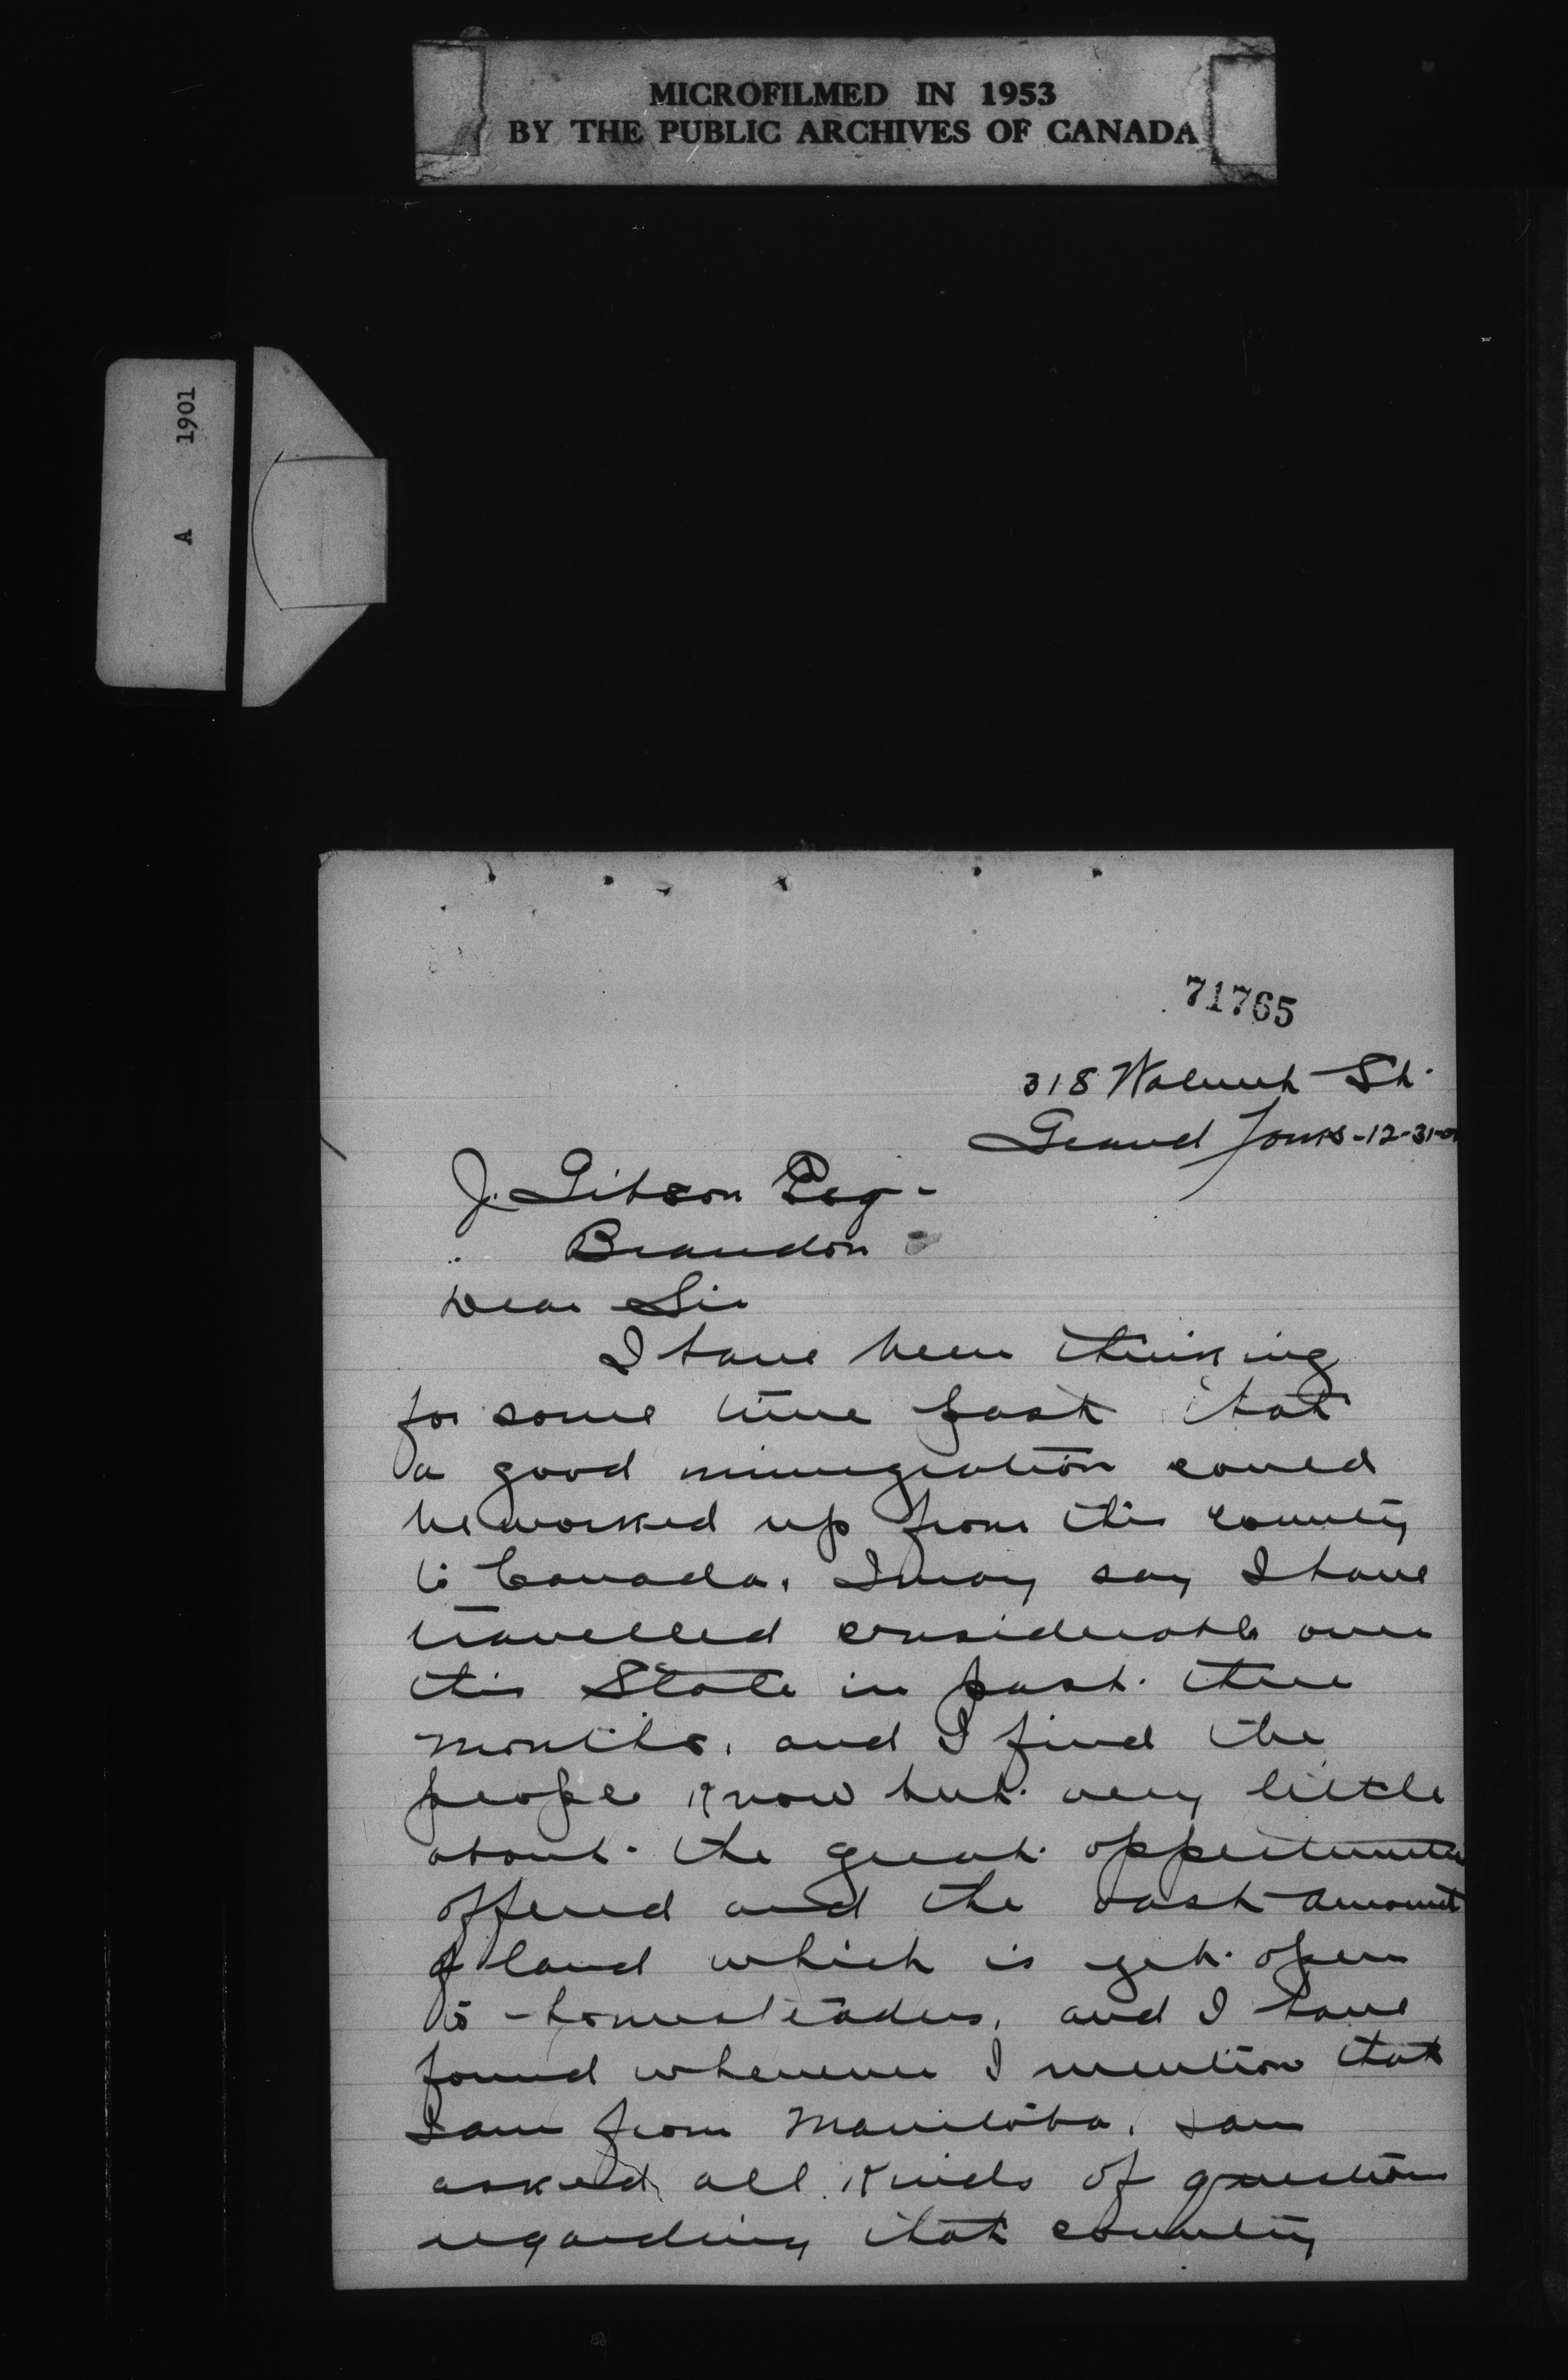 MICROFILMED IN 1953
BY THE PUBLIC ARCHIVES OF CANADA
A 1901
71765
318 Walnut St.
Grand Forks-12-31-0
J. Gibson Esq-
Brandon
Dear Sir
I have been thinking
for some time past that
a good immigration could
be worked up from this country
to Canada. I may say I have
travelled considerable over
this State in past three
months, and I find the
people know but very little
about the great opportunities
offered and the vast amount
of land which is yet open
to homesteaders, and I have
found whenever I mention that
I am from Manitoba, I am
asked all kinds of questions
regarding that country